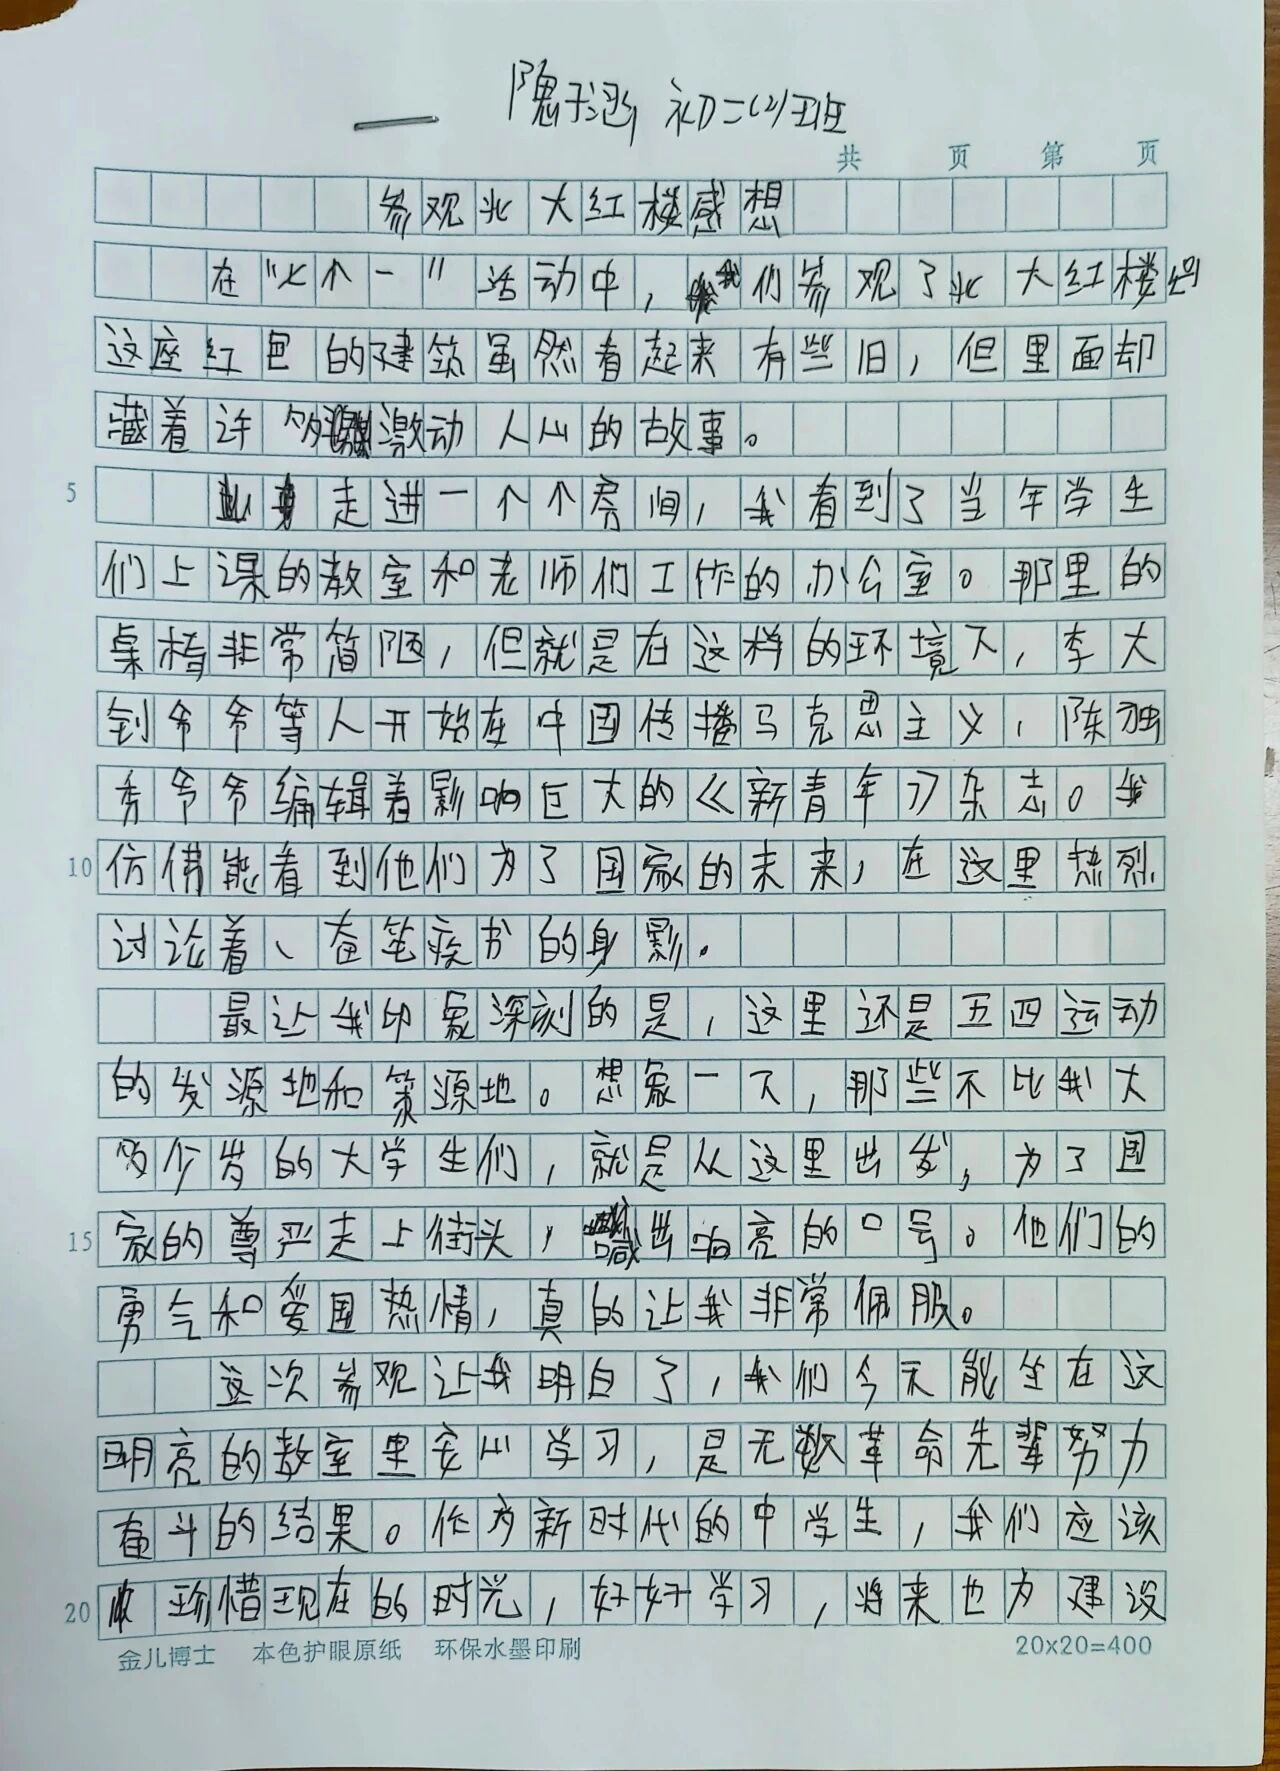 隐于涵 初二(2)班
共 页 第 页
参观北大红楼感想
在“七个一”活动中，我们参观了北大红楼。
这座红色的建筑虽然看起来有些旧，但里面却
藏着许多激动人心的故事。
5 走进一个个房间，我看到了当年学生
们上课的教室和老师们工作的办公室。那里的
桌椅非常简陋，但就是在这样的环境下，李大
钊爷爷等人开始在中国传播马克思主义，陈独
秀爷爷编辑着影响巨大的《新青年》杂志。我
10 仿佛能看到他们为了国家的未来，在这里热烈
讨论着、奋笔疾书的身影。
最让我印象深刻的是，这里还是五四运动
的发源地和策源地。想象一下，那些不比我大
多少岁的大学生们，就是从这里出发，为了国
15 家的尊严走上街头，喊出响亮的口号。他们的
勇气和爱国热情，真的让我非常佩服。
这次参观让我明白了，我们今天能坐在这
明亮的教室里安心学习，是无数革命先辈努力
奋斗的结果。作为新时代的中学生，我们应该
20 珍惜现在的时光，好好学习，将来也为建设
金儿博士 本色护眼原纸 环保水墨印刷 20x20=400